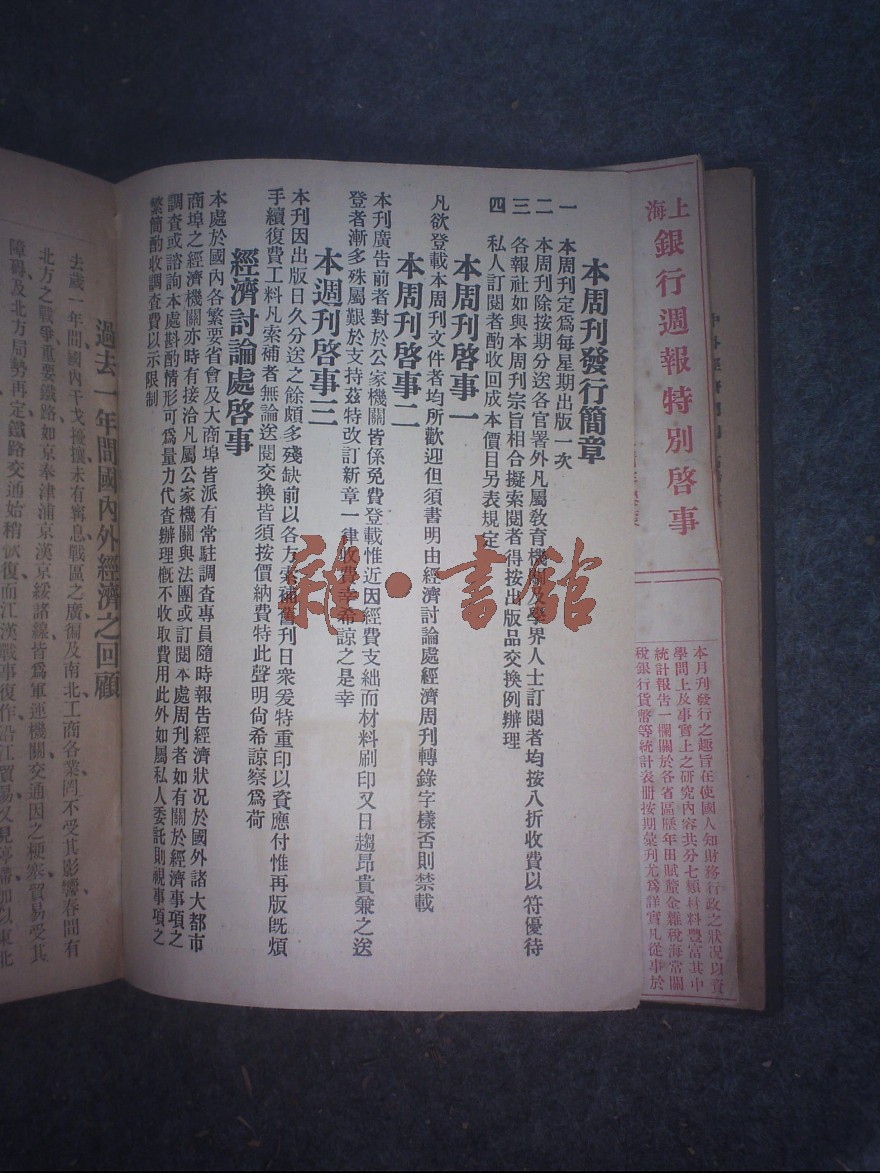 上海銀行週報特別啓事
本月刊發行之趣旨在使國人知財務行政之狀况以資
學問上及事實上之研究內容共分七類材料豐富其中
統計報告一欄關於各省區歷年田賦釐金雜稅海常關
稅銀行貨幣等統計表册按期彙刋尤爲詳實凡從事於
本周刊發行簡章
一　本周刊定爲每星期出版一次
二　本周刊除按期分送各官署外凡屬敎育機關及學界人士訂閱者均按八折收費以符優待
三　各報社如與本周刊宗旨相合擬索閱者得按出版品交換例辦理
四　私人訂閱者酌收回成本價目另表規定
本周刊啓事一
凡欲登載本周刊文件者均所歡迎但須書明由經濟討論處經濟周刊轉錄字樣否則禁載
本周刊啓事二
本刊廣告前者對於公家機關皆係免費登載惟近因經費支絀而材料刷印又日趨昂貴兼之送
登者漸多殊屬艱於支持茲特改訂新章一律收費幸希諒之是幸
本週刊啓事三
本刊因出版日久分送之餘頗多殘缺前以各方索補舊刊日衆爰特重印以資應付惟再版旣煩
手續復費工料凡索補者無論送閱交換皆須按價納費特此聲明尙希諒察爲荷
經濟討論處啓事
本處於國內各繁要省會及大商埠皆派有常駐調查專員隨時報告經濟狀况於國外諸大都市
商埠之經濟機關亦時有接洽凡屬公家機關與法團或訂閱本處周刊者如有關於經濟事項之
調查或諮詢本處斟酌情形可爲量力代查辦理槪不收取費用此外如屬私人委託則視事項之
繁簡酌收調查費以示限制
過去一年間國內外經濟之回顧
去歲一年間國內干戈擾攘未有寧息戰區之廣徧及南北工商各業罔不受其影響春間有
北方之戰爭重要鐵路如京奉津浦京漢京綏諸線皆爲軍運機關交通因之梗塞貿易受其
障碍及北方局勢再定鐵路交通始稍恢復而江漢戰事復作沿江貿易又見停滯加以東北
雜·書館